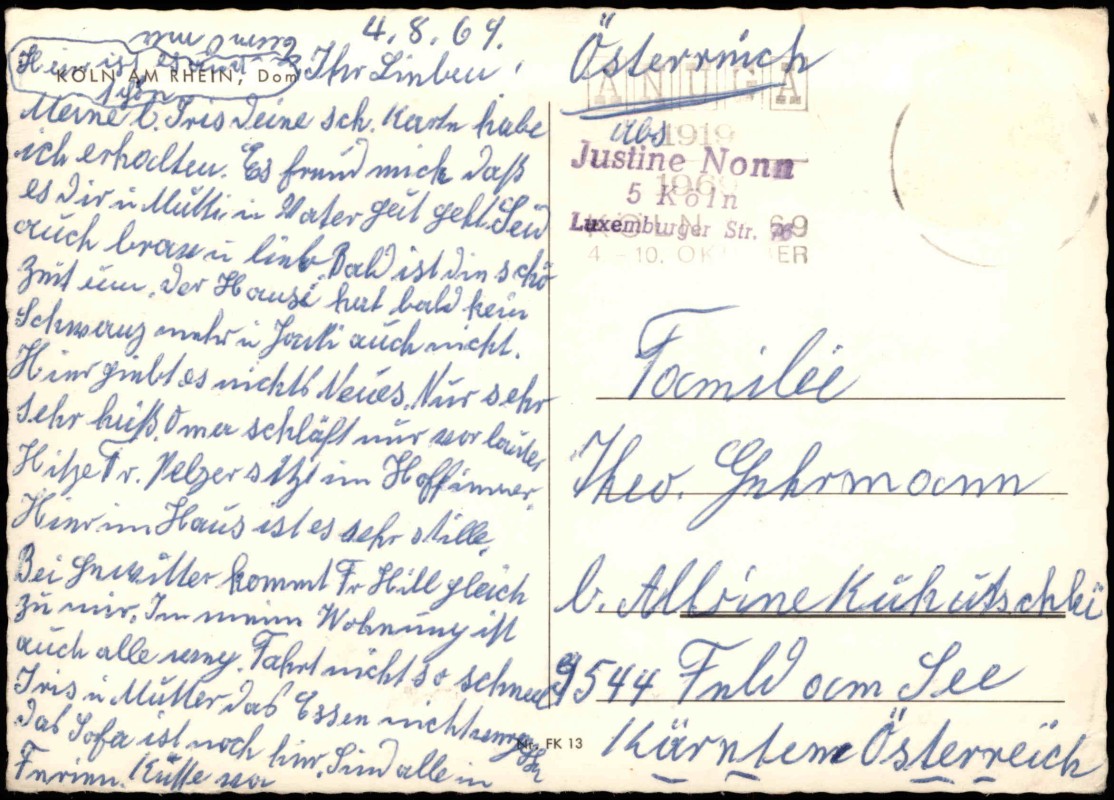 4. 8. 69.
KÖLN AM RHEIN, Dom
Hier ist es
schön
Ihr Lieben!
Meine l. Iris Deine sch. Karte habe
ich erhalten. Es freud mich daß
es dir u Mutti u Vater gut geht. Seid
auch brav u lieb. Bald ist die schö
Zeit um. Der Hansi hat bald kein
Schwanz mehr u Jocki auch nicht.
Hier giebt es nichts Neues. Nur sehr
sehr heiß. Oma schläft nur vor lauter
Hitze Fr. Pelzer sitzt im Hof immer.
Hier im Haus ist es sehr stille.
Bei Gewitter kommt Fr Hill gleich
zu mir. Im meine Wohnung ist
auch alle weg. Fahrt nicht so schnell
Iris u Mutter das Essen nicht
Das Sofa ist noch hier. Sind alle in
Ferien. Küsse
Nr. FK 13
Österreich
ANUGA
1919
1969
KÖLN 69
4.-10. OKTOBER
Abs
Justine Nonn
5 Köln
Luxemburger Str.
Familie
Theo. Gehrmann
b. Albine
9544 Feld am See
Kärnten Österreich